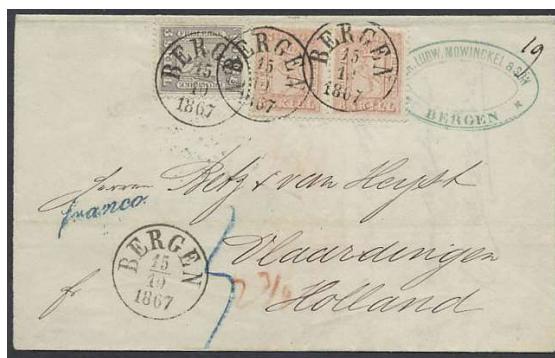 BERGEN
15
10
1867
BERGEN
15
10
1867
BERGEN
15
10
1867
LUDW. MOWINCKEL & SÖN
BERGEN
19
Herren Betz & van Heyst
franco.
Vlaardingen
Holland
fr
BERGEN
15
10
1867